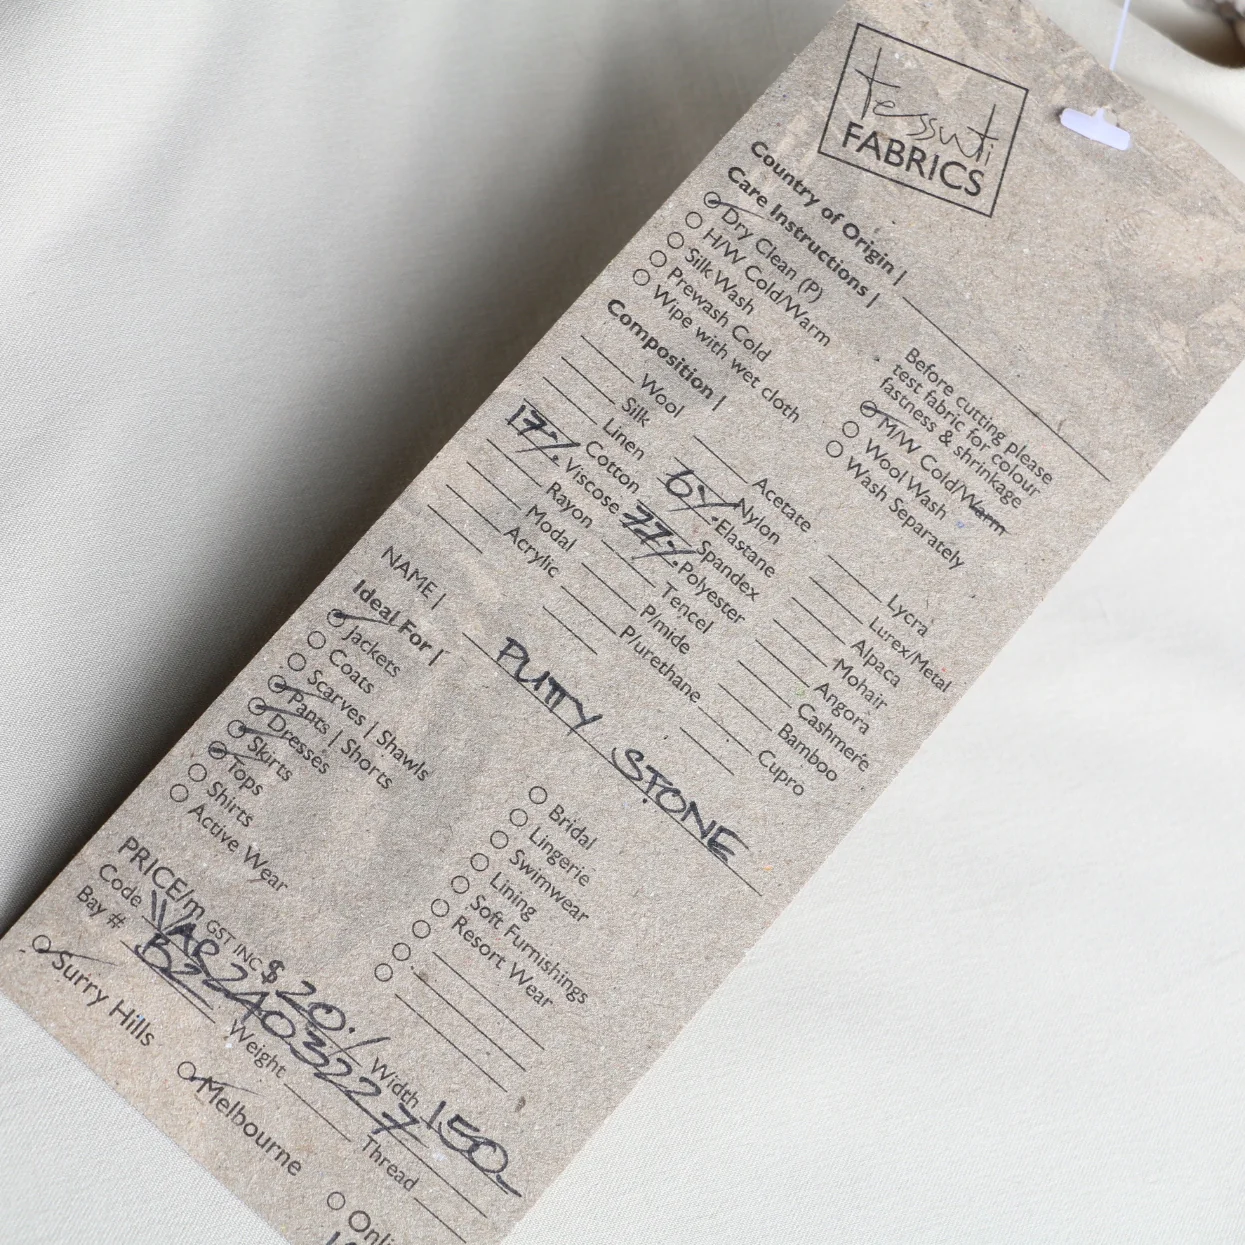 tessuti
FABRICS
Country of Origin |
Care Instructions |
Dry Clean (P)
H/W Cold/Warm
Silk Wash
Prewash Cold
Wipe with wet cloth
Before cutting please
test fabric for colour
fastness & shrinkage
M/W Cold/Warm
Wool Wash
Wash Separately
Composition |
Wool
Silk
Linen
Cotton
17% Viscose
Rayon
Modal
Acrylic
Acetate
Nylon
6% Elastane
Spandex
77% Polyester
Tencel
P/mide
P/urethane
Lycra
Lurex/Metal
Alpaca
Mohair
Angora
Cashmere
Bamboo
Cupro
NAME | PUTTY STONE
Ideal For |
Jackets
Coats
Scarves | Shawls
Pants | Shorts
Dresses
Skirts
Tops
Shirts
Active Wear
Bridal
Lingerie
Swimwear
Lining
Soft Furnishings
Resort Wear
PRICE/m GST INC $20./ Width 150
Code
Bay # Weight Thread
Surry Hills
Melbourne